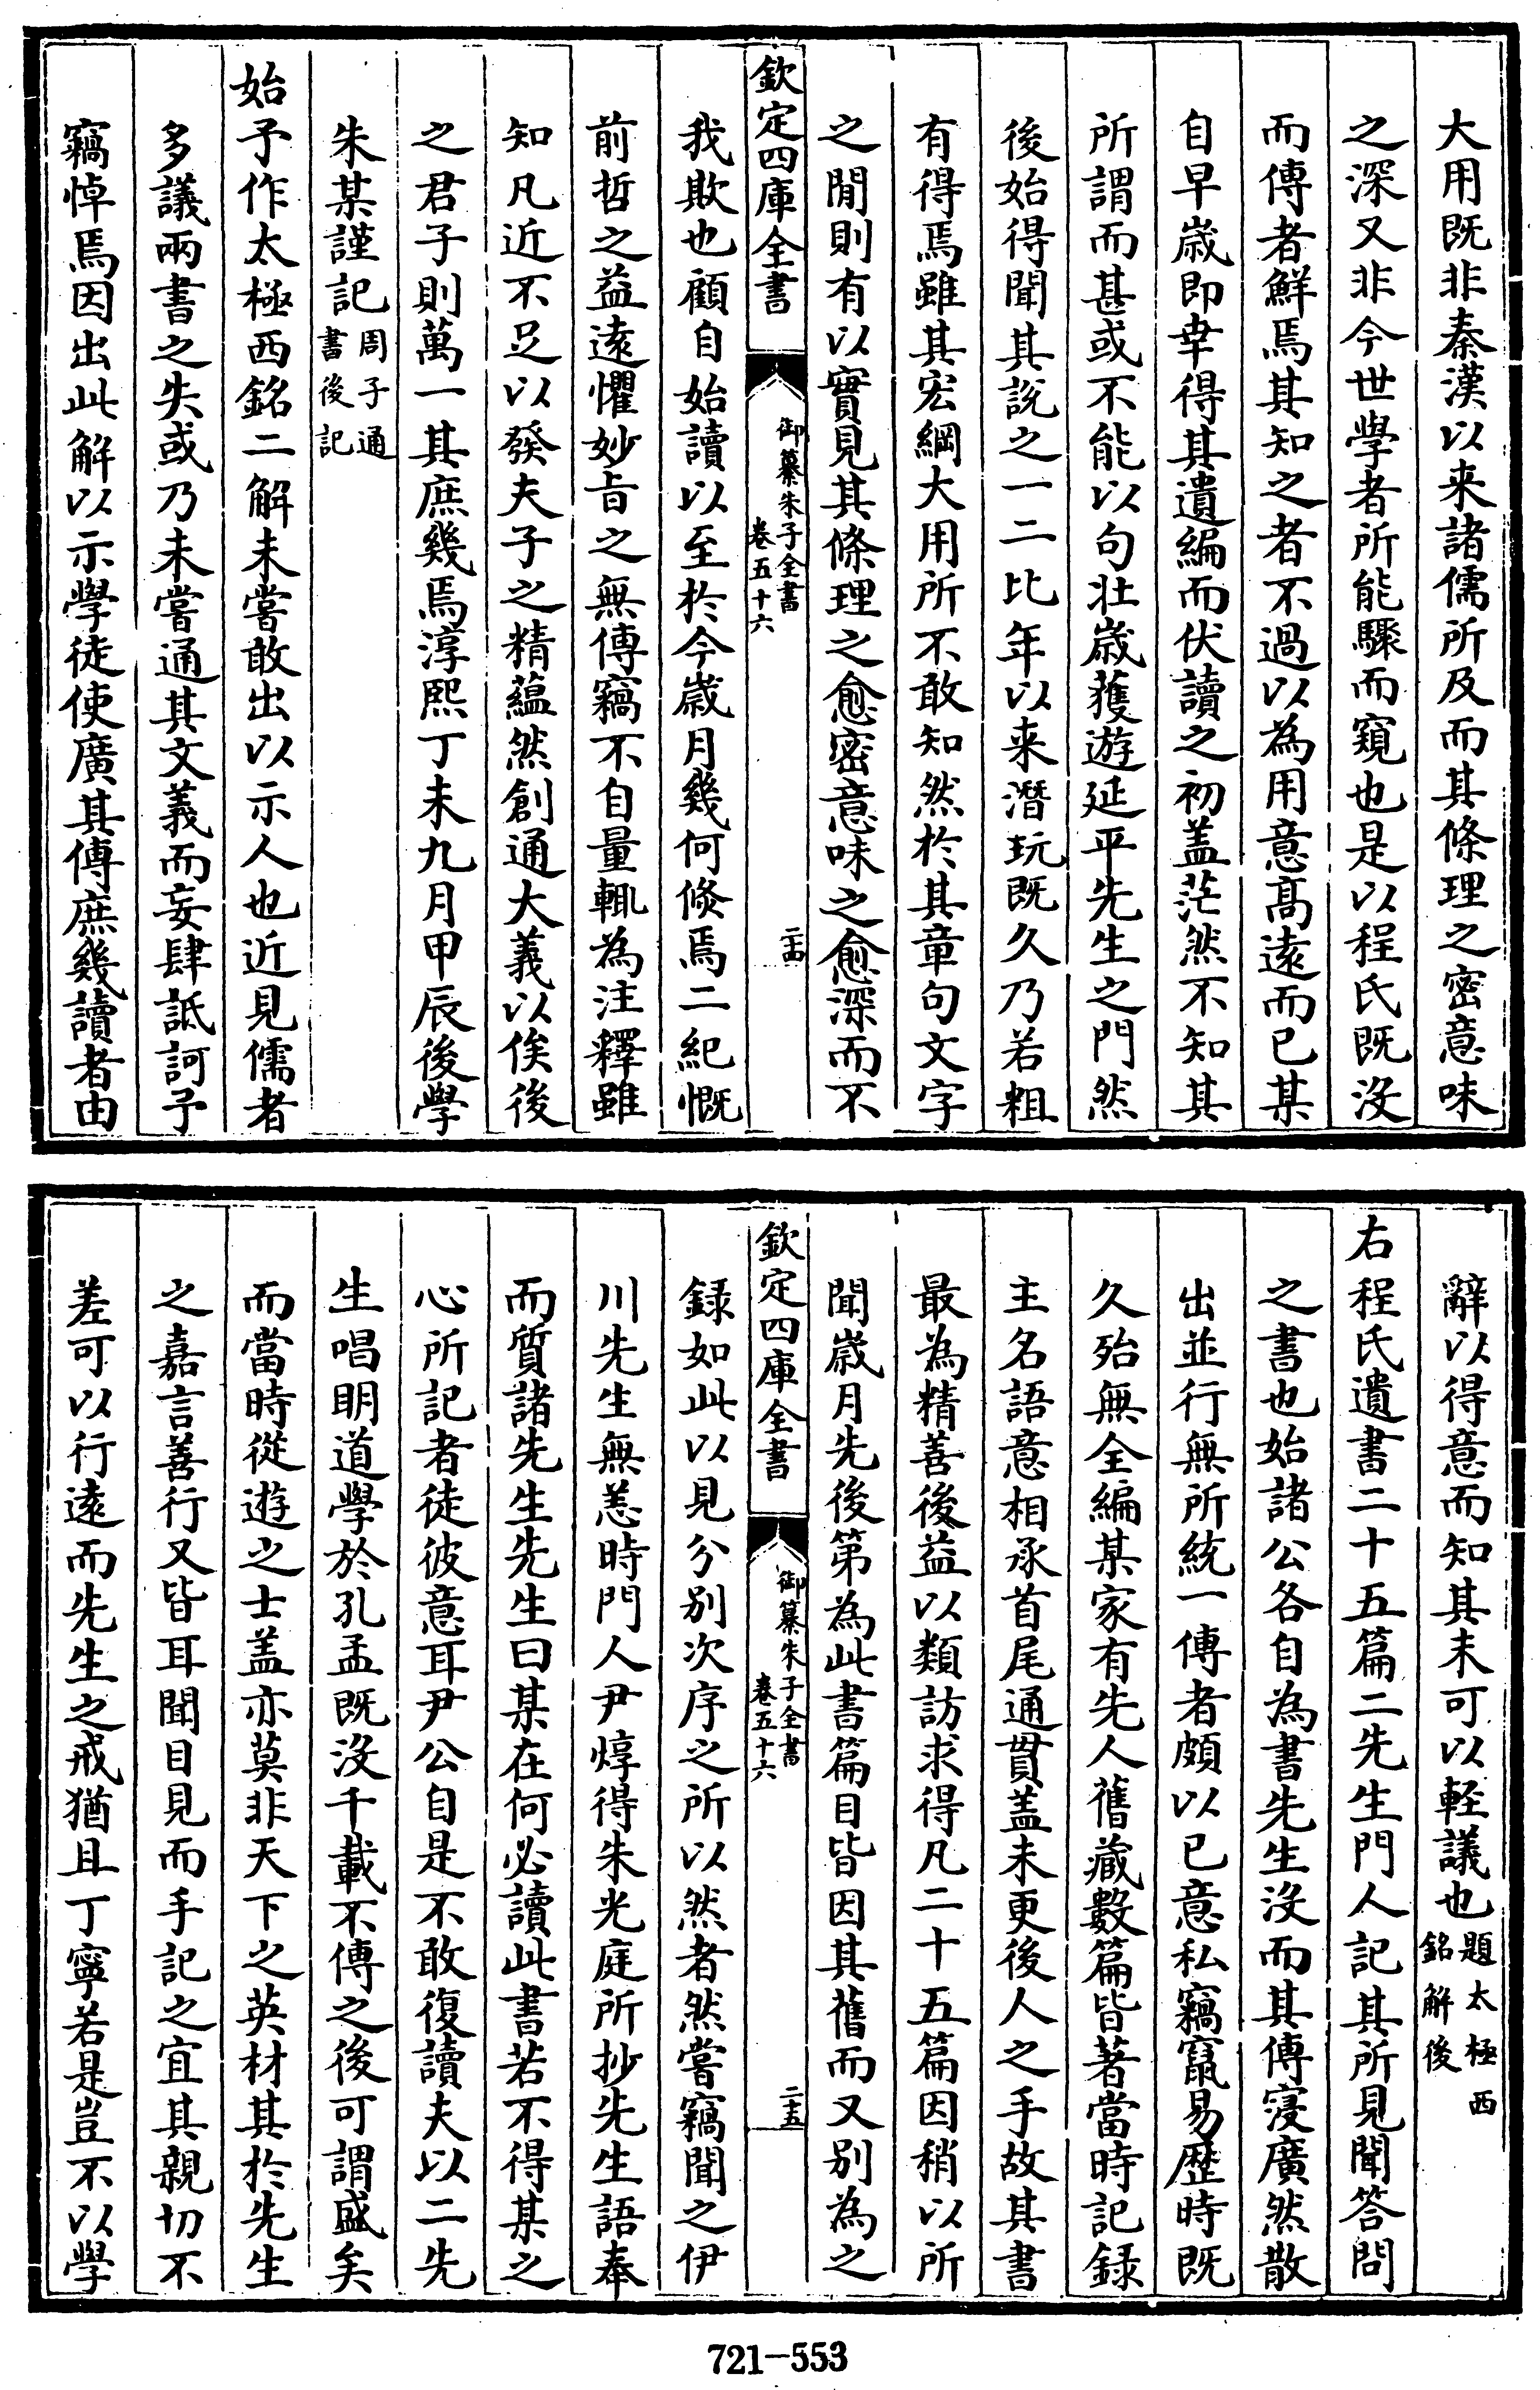 大用既非秦漢以来諸儒所及而其條理之密意味
之深又非今世學者所能驟而窺也是以程氏既没
而傳者鮮焉其知之者不過以為用意髙遠而已某
自早歳即幸得其遺編而伏讀之初盖茫然不知其
所謂而甚或不能以句壮歳獲遊延平先生之門然
後始得聞其説之一二比年以来潛玩既久乃若粗
有得焉雖其宏綱大用所不敢知然於其章句文字
之閒則有以實見其條理之愈密意味之愈深而不
欽定四庫全書
御纂朱子全書
卷五十六
二十四
我欺也顧自始讀以至於今歳月幾何倐焉二紀慨
前哲之益逺懼妙㫖之無傳竊不自量輒為注釋雖
知凡近不足以發夫子之精藴然創通大義以俟後
之君子則萬一其庶幾焉淳熙丁未九月甲辰後學
朱某謹記周子通
書後記
始予作太極西銘二解未嘗敢出以示人也近見儒者
多議兩書之失或乃未嘗通其文義而妄肆詆訶予
竊悼焉因出此解以示學徒使廣其傳庶幾讀者由
辭以得意而知其未可以輕議也題太極西
銘解後
右程氏遺書二十五篇二先生門人記其所見聞答問
之書也始諸公各自為書先生没而其傳寖廣然散
出並行無所統一傳者頗以已意私竊竄易歴時既
久殆無全編某家有先人舊藏數篇皆著當時記録
主名語意相承首尾通貫盖未更後人之手故其書
最為精善後益以類訪求得凡二十五篇因稍以所
聞歳月先後第為此書篇目皆因其舊而又别為之
欽定四庫全書
御纂朱子全書
卷五十六
二十五
録如此以見分别次序之所以然者然嘗竊聞之伊
川先生無恙時門人尹焞得朱光庭所抄先生語奉
而質諸先生先生曰某在何必讀此書若不得某之
心所記者徒彼意耳尹公自是不敢復讀夫以二先
生唱明道學於孔孟既没千載不傳之後可謂盛矣
而當時從遊之士盖亦莫非天下之英材其於先生
之嘉言善行又皆耳聞目見而手記之宜其親切不
差可以行逺而先生之戒猶且丁寧若是豈不以學
721-553